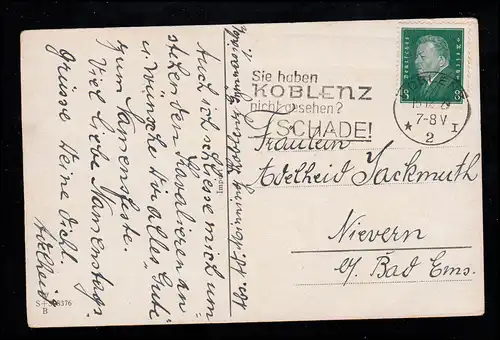 Auch ich schliesse mich um
stehen den Kavalieren an
u. wünsche Dir alles Gute
zum Namensfeste.
Viel liebe Namenstags
grüsse Deine Dich
Adelheid.
S+S 8376
B
Sie haben
KOBLENZ
nicht gesehen?
SCHADE!
Deutsches Reich
8 8
29
7-8 V
* 2 I
Fräulein
Adelheid Jackmuth
Nievern
b/ Bad Ems.